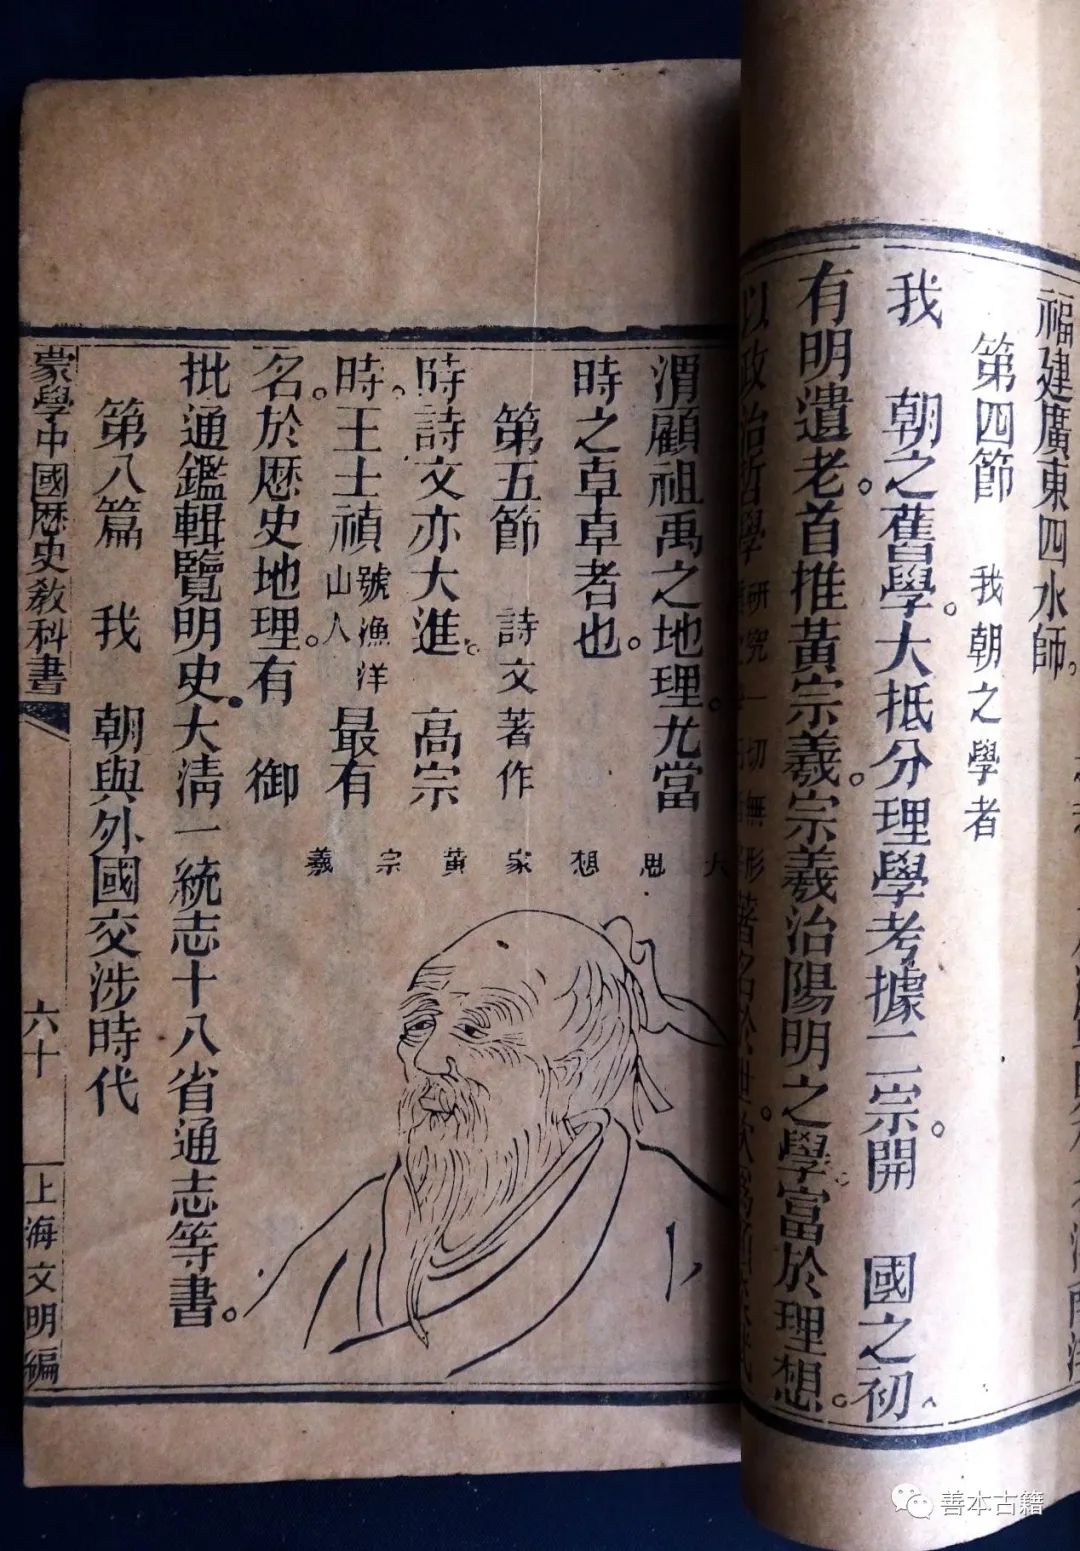 福建廣東四水師。
第四節 我朝之學者
我 朝之舊學。大抵分理學考據二宗。開 國之初、
有明遺老。首推黃宗羲。宗羲治陽明之學。富於理想。
以政治哲學 研究一切無形 著名於世。
渭顧祖禹之地理。尤當
時之卓卓者也。
第五節 詩文著作
時詩文亦大進。 高宗
時。王士禎 號漁洋山人 最有
名。於歷史地理。有 御
批通鑑輯覽明史。大清一統志十八省通志等書。
第八篇 我 朝與外國交涉時代
大思想家黃宗羲
蒙學中國歷史教科書
六十
上海文明編
善本古籍